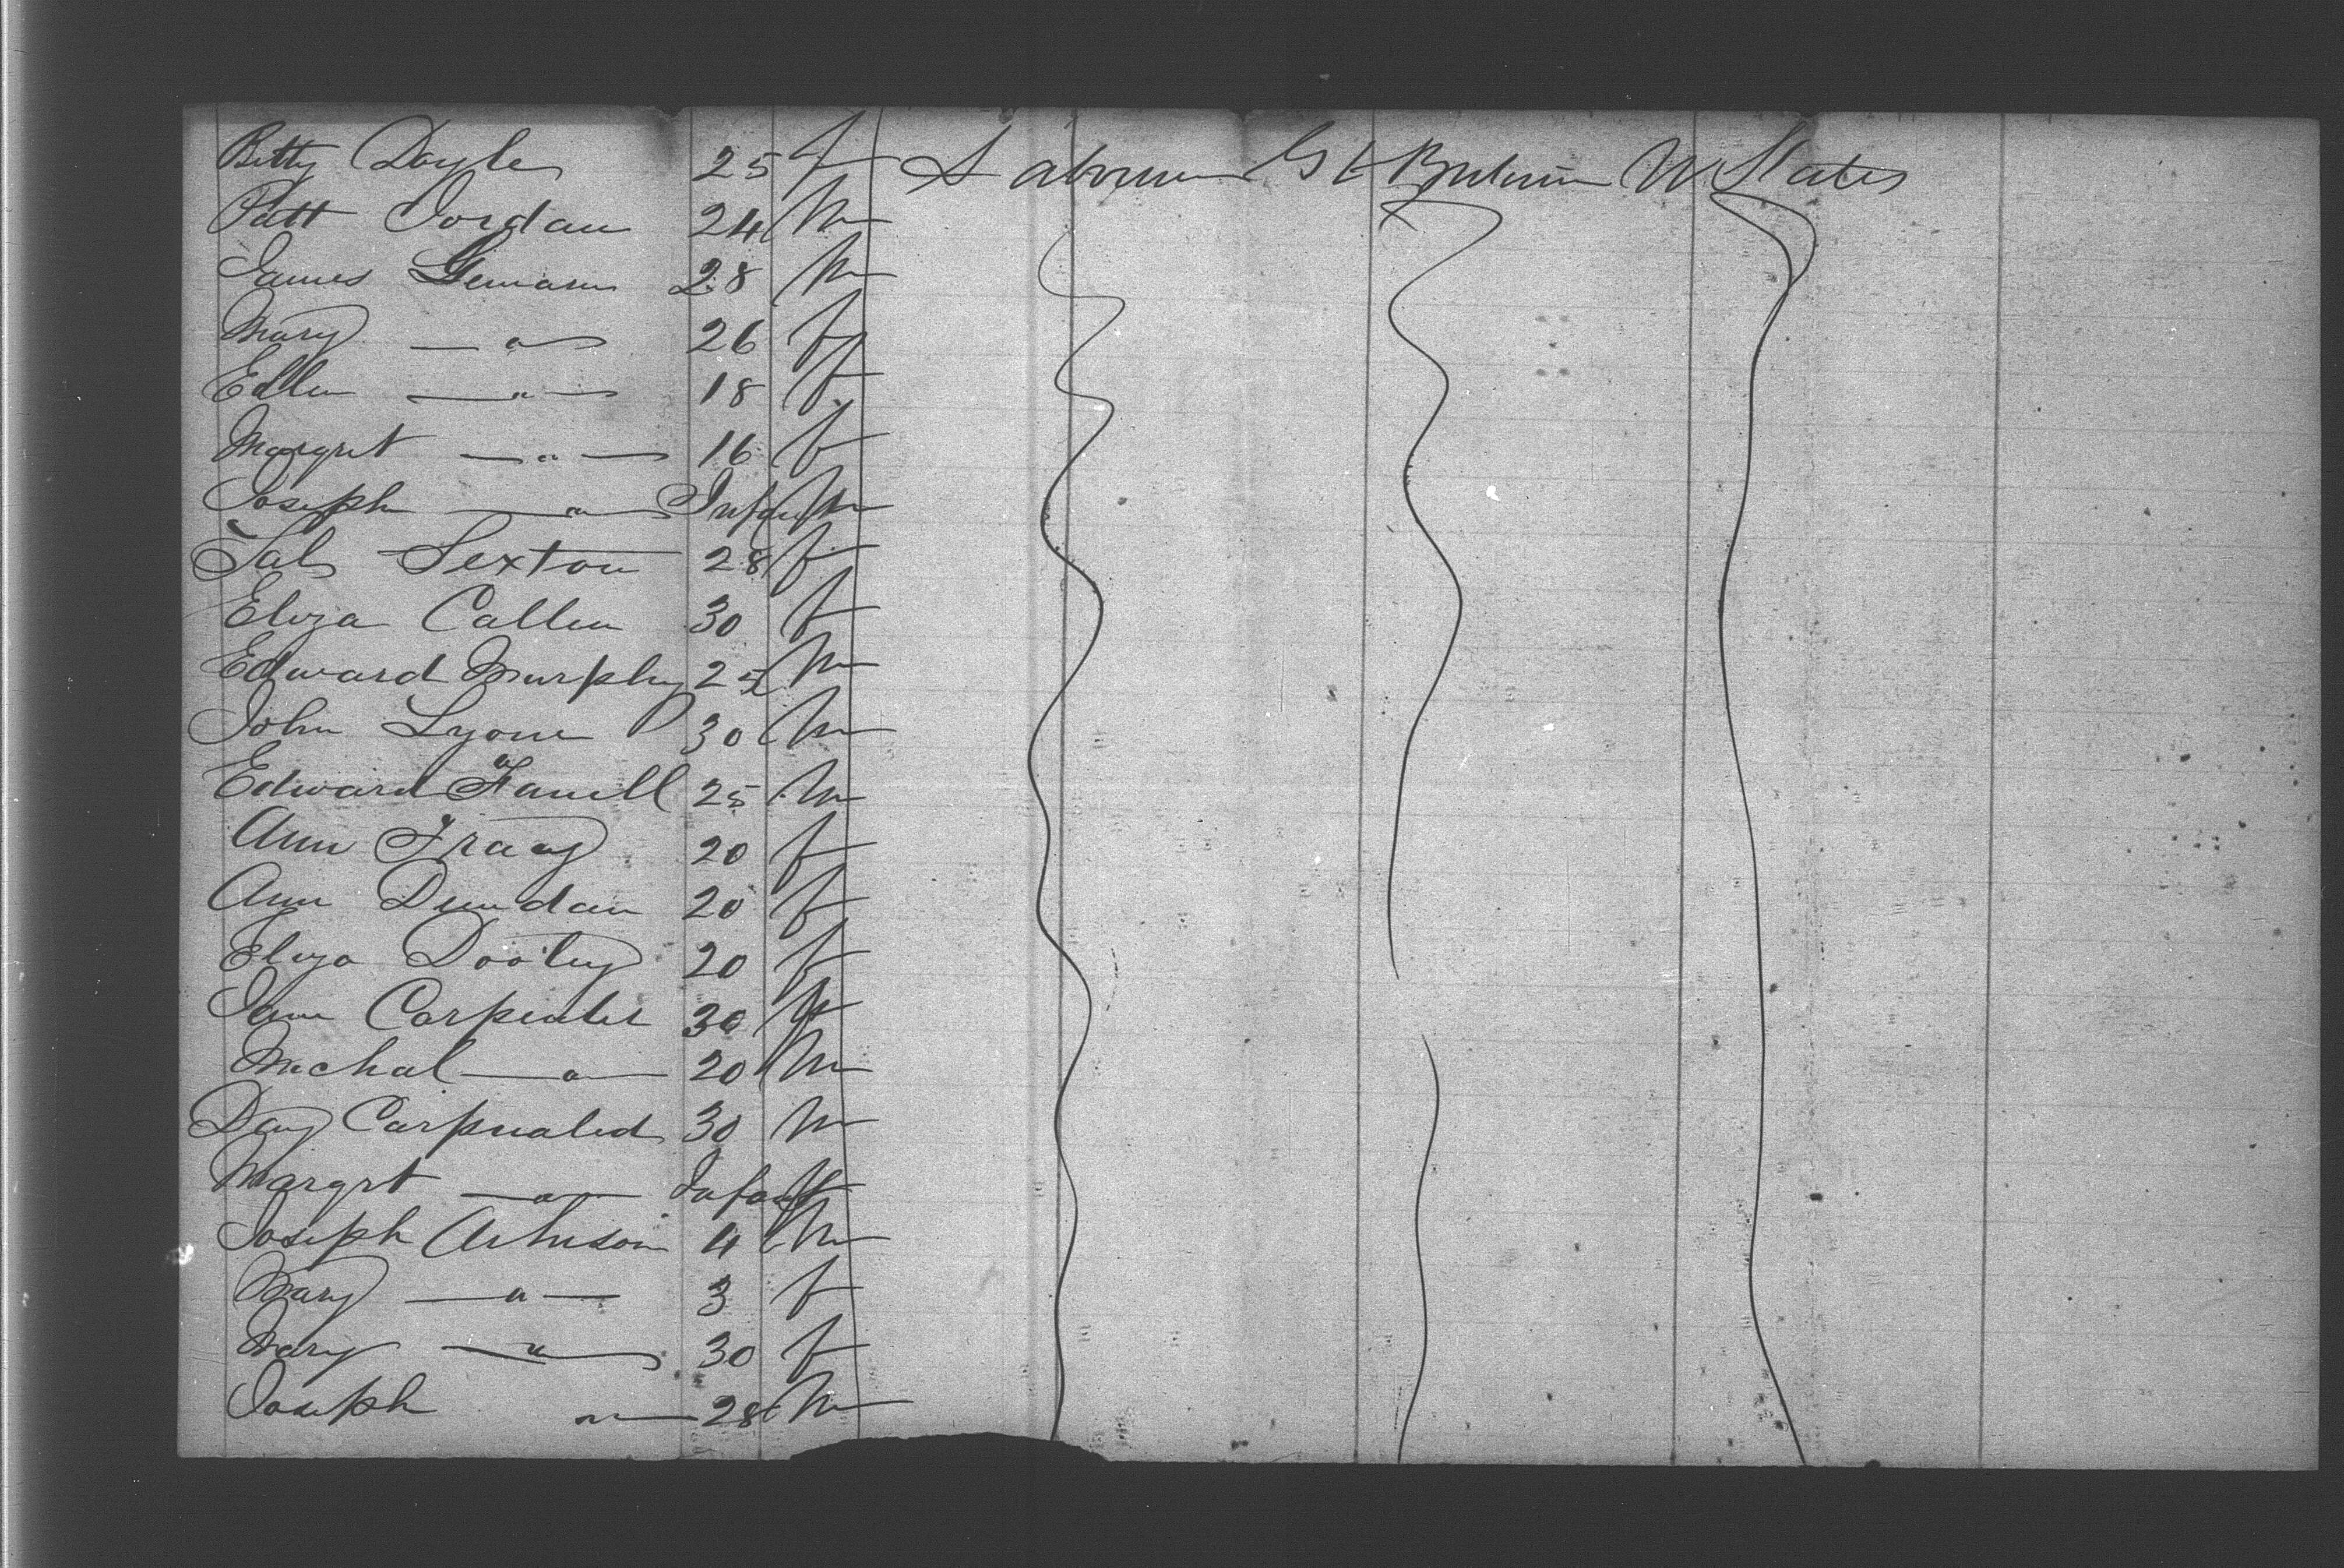 Betty Doyle 25 f Laborer Gt Britain U States
Patt Jordan 24 M
James 28 M
Mary — " — 26 f
Ellen — " — 18 f
Margret — " — 16 f
Joseph — " — Infant M
Sexton 28 f
Eliza Callen 30 f
Edward Murphy 25 M
John Lyons 30 M
Edward Farrell 25 M
Ann Tracy 20 f
Ann Dundan 20 f
Eliza Dooley 20 f
Jane Carpenter 30 f
Michal — " — 20 M
Carpenter 30 M
Margrt — " — Infant f
Joseph 4 M
Mary — " — 3 f
Mary — " — 30 f
Joseph " — 28 M